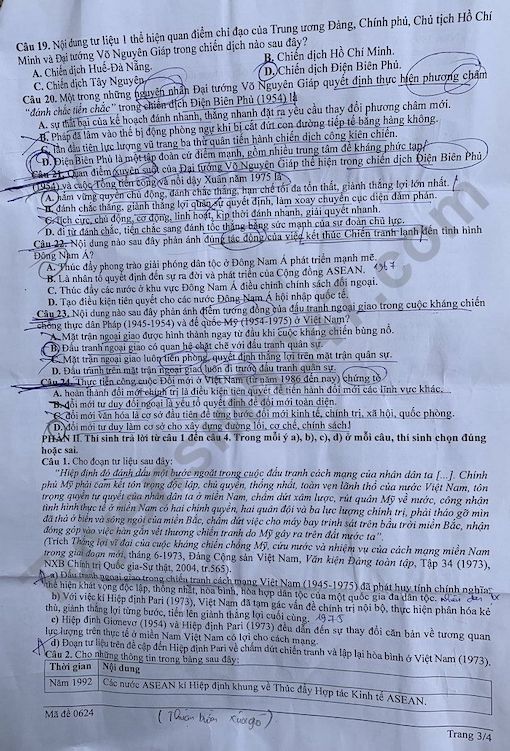 Câu 19. Nội dung tư liệu 1 thể hiện quan điểm chỉ đạo của Trung ương Đảng, Chính phủ, Chủ tịch Hồ Chí
Minh và Đại tướng Võ Nguyên Giáp trong chiến dịch nào sau đây?
A. Chiến dịch Huế-Đà Nẵng. B. Chiến dịch Hồ Chí Minh.
C. Chiến dịch Tây Nguyên. D. Chiến dịch Điện Biên Phủ.
Câu 20. Một trong những nguyên nhân Đại tướng Võ Nguyên Giáp quyết định thực hiện phương châm
“đánh chắc tiến chắc” trong chiến dịch Điện Biên Phủ (1954) là
A. sự thất bại của kế hoạch đánh nhanh, thắng nhanh đặt ra yêu cầu thay đổi phương châm mới.
B. Pháp đã lâm vào thế bị động phòng ngự khi bị cắt đứt con đường tiếp tế bằng hàng không.
C. lần đầu tiên lực lượng vũ trang ba thứ quân tiến hành chiến dịch công kiên chiến.
D. Điện Biên Phủ là một tập đoàn cứ điểm mạnh, gồm nhiều trung tâm đề kháng phức tạp.
Câu 21. Quan điểm xuyên suốt của Đại tướng Võ Nguyên Giáp thể hiện trong chiến dịch Điện Biên Phủ
(1954) và cuộc Tổng tiến công và nổi dậy Xuân năm 1975 là
A. nắm vững quyền chủ động, đánh chắc thắng, hạn chế tối đa tổn thất, giành thắng lợi lớn nhất.
B. đánh chắc thắng, giành thắng lợi quân sự quyết định, làm xoay chuyển cục diện đàm phán.
C. tích cực, chủ động, cơ động, linh hoạt, kịp thời đánh nhanh, giải quyết nhanh.
D. đi từ đánh chắc, tiến chắc sang đánh tốc thắng bằng sức mạnh của sư đoàn chủ lực.
Câu 22. Nội dung nào sau đây phản ánh đúng tác động của việc kết thúc Chiến tranh lạnh đến tình hình
Đông Nam Á?
A. Thúc đẩy phong trào giải phóng dân tộc ở Đông Nam Á phát triển mạnh mẽ.
B. Là nhân tố quyết định đến sự ra đời và phát triển của Cộng đồng ASEAN. 1967
C. Thúc đẩy các nước ở khu vực Đông Nam Á điều chỉnh chính sách đối ngoại.
D. Tạo điều kiện tiên quyết cho các nước Đông Nam Á hội nhập quốc tế.
Câu 23. Nội dung nào sau đây phản ánh điểm tương đồng của đấu tranh ngoại giao trong cuộc kháng chiến
chống thực dân Pháp (1945-1954) và đế quốc Mỹ (1954-1975) ở Việt Nam?
A. Mặt trận ngoại giao được hình thành ngay từ đầu khi cuộc kháng chiến bùng nổ.
B. Đấu tranh ngoại giao có quan hệ chặt chẽ với đấu tranh quân sự.
C. Mặt trận ngoại giao luôn tiên phong, quyết định thắng lợi trên mặt trận quân sự.
D. Đấu tranh trên mặt trận ngoại giao luôn đi trước đấu tranh quân sự.
Câu 24. Thực tiễn công cuộc Đổi mới ở Việt Nam (từ năm 1986 đến nay) chứng tỏ
A. hoàn thành đổi mới chính trị là điều kiện tiên quyết để tiến hành đổi mới các lĩnh vực khác.
B. đổi mới tư duy đối ngoại là yếu tố quyết định để đổi mới toàn diện.
C. đổi mới văn hóa là cơ sở đầu tiên để từng bước đổi mới kinh tế, chính trị, xã hội, quốc phòng.
D. đổi mới tư duy làm cơ sở cho xây dựng đường lối, cơ chế, chính sách.
PHẦN II. Thí sinh trả lời từ câu 1 đến câu 4. Trong mỗi ý a), b), c), d) ở mỗi câu, thí sinh chọn đúng
hoặc sai.
Câu 1. Cho đoạn tư liệu sau:
“Hiệp định đó đánh dấu một bước ngoặt trong cuộc đấu tranh cách mạng của nhân dân ta [...]. Chính
phủ Mỹ phải cam kết tôn trọng độc lập, chủ quyền, thống nhất, toàn vẹn lãnh thổ của nước Việt Nam, tôn
trọng quyền tự quyết của nhân dân ta ở miền Nam, chấm dứt xâm lược, rút quân Mỹ về nước, công nhận
tình hình thực tế ở miền Nam có hai chính quyền, hai quân đội và ba lực lượng chính trị, phải tháo gỡ mìn
đã thả ở biển và sông ngòi của miền Bắc, chấm dứt việc cho máy bay trinh sát trên bầu trời miền Bắc, nhận
đóng góp vào việc hàn gắn vết thương chiến tranh do Mỹ gây ra trên đất nước ta”.
(Trích Thắng lợi vĩ đại của cuộc kháng chiến chống Mỹ, cứu nước và nhiệm vụ của cách mạng miền Nam
trong giai đoạn mới, tháng 6-1973, Đảng Cộng sản Việt Nam, Văn kiện Đảng toàn tập, Tập 34 (1973),
NXB Chính trị Quốc gia-Sự thật, 2004, tr.565).
a) Đấu tranh ngoại giao trong chiến tranh cách mạng Việt Nam (1945-1975) đã phát huy tính chính nghĩa:
thể hiện khát vọng độc lập, thống nhất, hòa bình, hòa hợp dân tộc của một quốc gia đa dân tộc.
b) Với việc kí Hiệp định Pari (1973), Việt Nam đã tạm gác vấn đề chính trị nội bộ, thực hiện phân hóa kẻ
thù, giành thắng lợi từng bước, tiến lên giành thắng lợi cuối cùng. 1975
c) Hiệp định Giơnevơ (1954) và Hiệp định Pari (1973) đều dẫn đến sự thay đổi căn bản về tương quan
lực lượng trên thực tế ở miền Nam Việt Nam có lợi cho cách mạng.
d) Đoạn tư liệu trên đề cập đến Hiệp định Pari về chấm dứt chiến tranh và lập lại hòa bình ở Việt Nam (1973).
Câu 2. Cho những thông tin trong bảng sau đây:
Thời gian Nội dung
Năm 1992 Các nước ASEAN kí Hiệp định khung về Thúc đẩy Hợp tác Kinh tế ASEAN.
Mã đề 0624
Trang 3/4